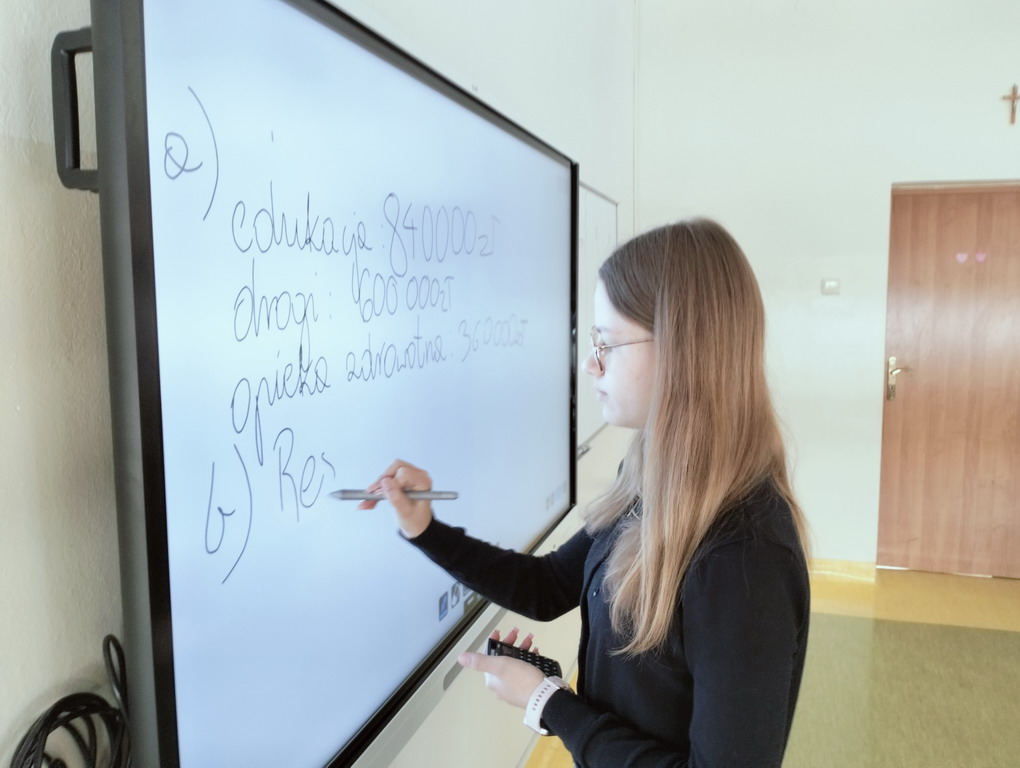 a)
edukacja: 840000zł
drogi: 600 000zł
opieka zdrowotna: 360000zł
b) Res